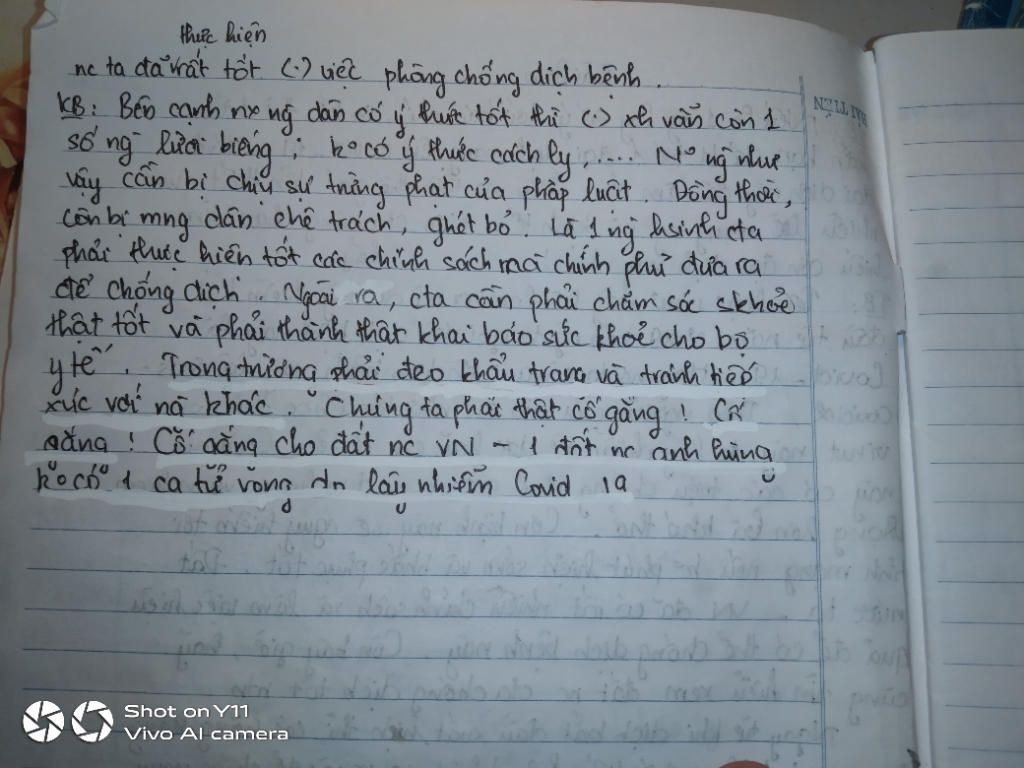 thực hiện
nc ta đã rất tốt (.) việc phòng chống dịch bệnh.
KB: Bên cạnh nx ng dân có ý thức tốt thì (.) xh vẫn còn 1
số ng lười biếng; ko có ý thức cách ly, .... No ng như
vậy cần bị chịu sự trừng phạt của pháp luật. Đồng thời,
còn bị mng dân chê trách, ghét bỏ. Là 1 ng hsinh cta
phải thực hiện tốt các chính sách mà chính phủ đưa ra
để chống dịch. Ngoài ra, cta cần phải chăm sóc skhoẻ
thật tốt và phải thành thật khai báo sức khoẻ cho bộ
y tế. Trong trường phải đeo khẩu trang và tránh tiếp
xúc với ng khác. "Chúng ta phải thật cố gắng! Cố
gắng! Cố gắng cho đất nc VN - 1 đất nc anh hùng
ko có 1 ca tử vong do lây nhiễm Covid 19
Shot on Y11
Vivo AI camera